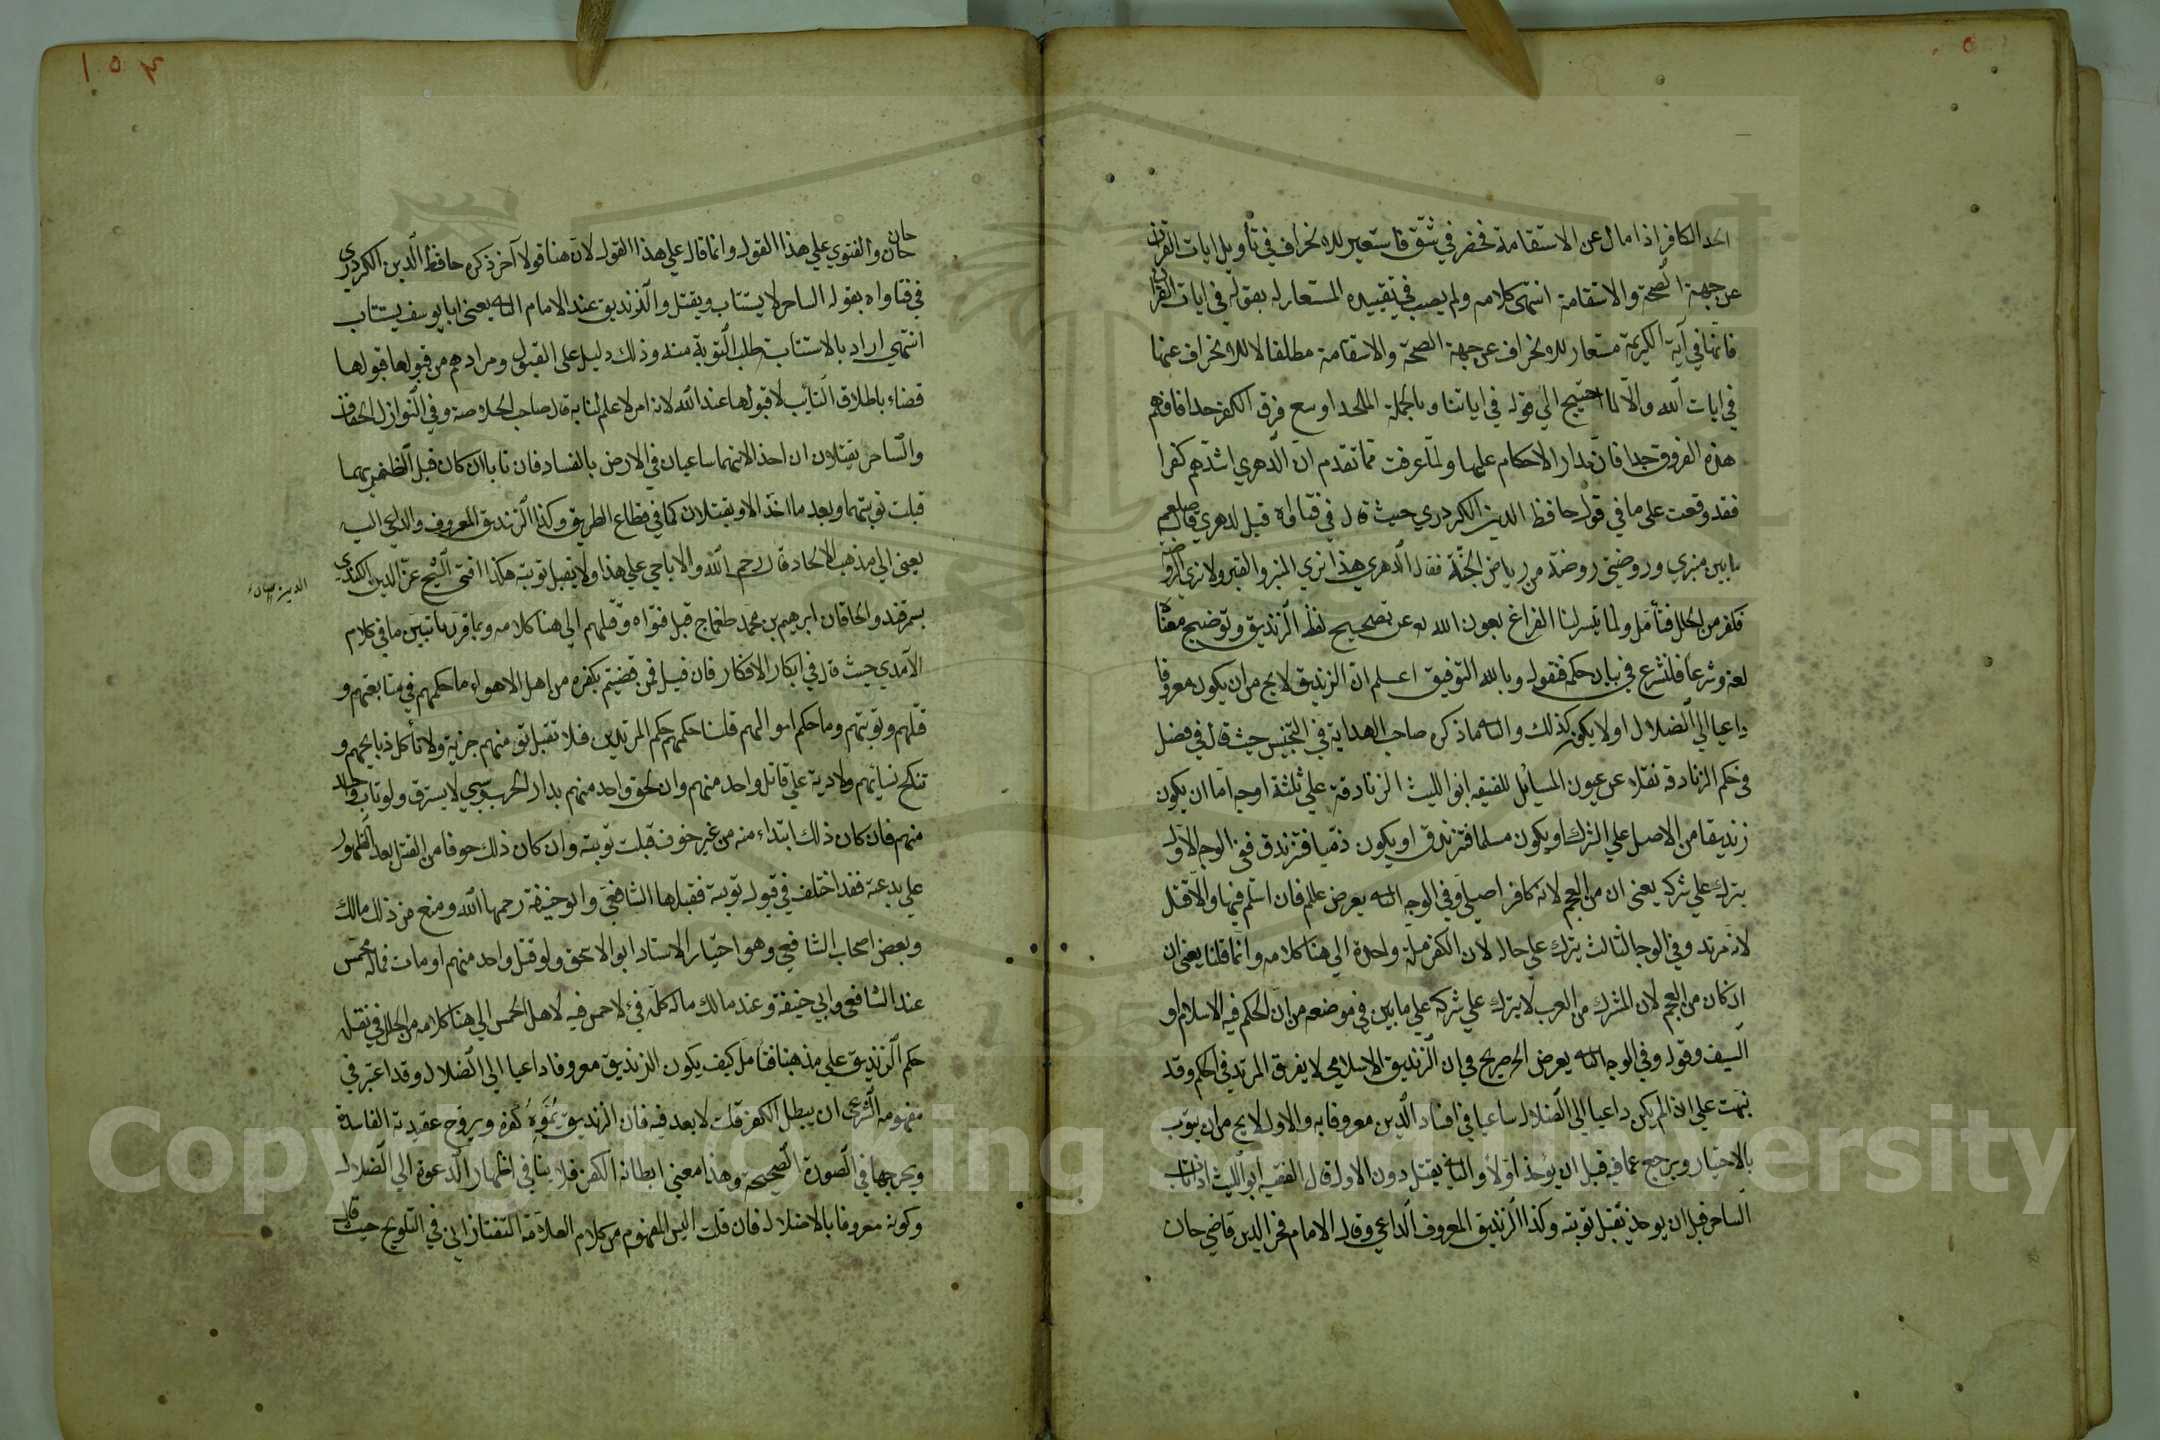 الحد الكافر اذا مال عن الاستقامة فحفر في شق فاستعير للانحراف في تأويل ايات القرآن
عن جهة الصحة والاستقامة انتهى كلامه ولم يصب في تقييده المستعار له بقوله في ايات القرآن
فانها في آية الكريمة مستعار للانحراف عن جهة الصحة والاستقامة مطلقا لا للانحراف عنها
في ايات الله والا لما احتيج الى قوله في اياتنا وبالجملة الملحد اوسع فرق الكفر حدا فافهم
هذه الفروق جدا فان مدار الاحكام عليها ولما عرفت مما تقدم ان الدهري اشدهم كفرا
فقد وقعت على ما في قول حافظ الدين الكردري حيث قال في فتاواه قيل لدهري قال صلعم
ما بين منبري وروضتي روضة من رياض الجنة فقال الدهري هذا نري المنبر والقبر ولا نري الروضة
فكفر من الخلل فتأمل ولما تيسر لنا الفراغ بعون الله عن تصحيح لفظ الزنديق وتوضيح معناه
لغة وشرعا فلنشرع في بيان حكمه فنقول وبالله التوفيق اعلم ان الزنديق لا يخ من ان يكون معروفا
داعيا الي الضلال او لا يكون كذلك والثا ما ذكره صاحب الهداية في التجنيس حيث قال في فصل
في حكم الزنادقة نقلا عن عيون المسائل للفقيه ابو الليث الزنادقة علي ثلثة اوجه اما ان يكون
زنديقا من الاصل علي الشرك او يكون مسلما فتزندق او يكون ذميا فتزندق ففي الوجه الاول
يترك علي شركه يعني ان من العجم لانه كافر اصيلي وفي الوجه الثا يعرض علم فان اسلم فبها والا قتل
لانه مرتد وفي الوجا لثالث يترك علي حاله لان الكفر ملة واحدة الي هنا كلامه وانما قلنا يعني ان
ان كان من العجم لان المشرك من العرب لا يترك علي شركه علي ما بين في موضعه من ان الحكم فيه الاسلام او
السيف وقوله وفي الوجه الثا يعرض الخ صريح في ان الزنديق الاسلامي لا يفرق المرتد في الحكم وقد
نبهت علي ان لم يكن داعيا الي الضلال ساعيا في افساد الدين معروفا به والاول لا يخ من ان يتوب
بالاختيار ويرجع عما فيه قبل ان يؤخذ اولا والثاني يقتل دون الاول قال الفقيه ابو الليث اذا تاب
الساحر قبل ان يوخذ تقبل توبته وكذا الزنديق المعروف الداعي وقال الامام فخر الدين قاضي حان
حان والفتوي علي هذا القول وانما قال علي هذا القول لان هنا قولا آخر ذكره حافظ الدين الكردري
في فتاواه بقوله الساحر لا يستتاب ويقتل والزنديق عند الامام الثا يعني ابا يوسف يستتاب
انتهي اراد بالاستتابة طلب التوبة منه وذلك دليل على القبول ومرادهم من قبولها قبولها
قضاء باطلاق التائب لا قبولها عند الله لانه امر لا علم لنا به قال صاحب الخلاصة وفي النوازل الخناق
والساحر يقتلان ان احذا لانهما ساعيان في الارض بالفساد فان تابا ان كان قبل الظفر بهما
قبلت توبتهما وبعد ما اخذا لا ويقتلان كما في قطاع الطريق وكذا الزنديق المعروف والداعي اليه
يعني الي مذهب الالحاد قال رحمه الله والاباحي علي هذا ولا يقبل توبته هكذا افتى الشيخ عز الدين الكندي
بسمرقند والخاقان ابرهيم بن محمد طغماج قبل فتواه وقتلهم الي هنا كلامه وبما قرناه تبين ما في كلام
الآمدي حيث قال في ابكار الافكار فان قيل فمن قضيتم بكفره من اهل الاهواء ما حكمهم في متابعتهم و
قتلهم وتوبتهم وما حكم اموالهم قلنا حكمهم حكم المرتدين فلا تقبل تو منهم جزية ولا تأكل ذبايحهم و
تنكح نسائهم ولا دية علي قاتل واحد منهم وان لحق واحد منهم بدار الحرب وسبي لا يسترق ولو تاب واحد
منهم فان كان ذلك ابتداء منه من غير خوف قبلت توبته وان كان ذلك خوفا من القتل بعد الظهور
علي بدعته فقد اختلف في قبول توبته فقبلها الشافعي وابو حنيفة رحمهما الله ومنع من ذلك مالك
وبعض اصحاب الشافعي وهو اختيار الاستاد ابو الاسحق ولو قتل واحد منهم او مات فماله مخمس
عند الشافعي وابي حنيفة وعند مالك ماله كله فئ لا خمس فيه لاهل الخمس الي هنا كلامه من الخلل في نقله
حكم الزنديق علي مذهبنا فتأمل كيف يكون الزنديق معروفا داعيا الي الضلال وقد اعتبر في
مفهومه الشرعي ان يبطل الكفر قلت لا بعد فيه فان الزنديق يموه كفره ويروج عقيدته الفاسدة
ويخرجها في الصورة الصحيحة وهذا معني ابطانه الكفر فلا ينافي اظهار الدعوة الي الضلال
وكونه معروفا بالاضلال فان قلت اليس المفهوم من كلام العلامة التفتازاني في التلويح حيث قال